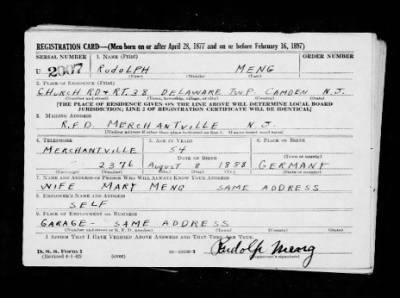 REGISTRATION CARD—(Men born on or after April 28, 1877 and on or before February 16, 1897)
SERIAL NUMBER 1. NAME (Print) ORDER NUMBER
U 2007 RUDOLPH MENG
(First) (Middle) (Last)
2. PLACE OF RESIDENCE (Print)
CHURCH RD & RT. 38 DELAWARE TWP. CAMDEN N.J.
(Number and street) (Town, township, village, or city) (County) (State)
[THE PLACE OF RESIDENCE GIVEN ON THE LINE ABOVE WILL DETERMINE LOCAL BOARD
JURISDICTION; LINE 2 OF REGISTRATION CERTIFICATE WILL BE IDENTICAL]
3. MAILING ADDRESS
R.F.D. MERCHANTVILLE N.J.
[Mailing address if other than place indicated on line 2. If same insert word same]
4. TELEPHONE 5. AGE IN YEARS 6. PLACE OF BIRTH
MERCHANTVILLE 54
DATE OF BIRTH (Town or county)
2376 AUGUST 8 1888 GERMANY
(Exchange) (Number) (Mo.) (Day) (Yr.) (State or country)
7. NAME AND ADDRESS OF PERSON WHO WILL ALWAYS KNOW YOUR ADDRESS
WIFE MARY MENG SAME ADDRESS
8. EMPLOYER'S NAME AND ADDRESS
SELF
9. PLACE OF EMPLOYMENT OR BUSINESS
GARAGE - SAME ADDRESS
(Number and street or R. F. D. number) (Town) (County) (State)
I AFFIRM THAT I HAVE VERIFIED ABOVE ANSWERS AND THAT THEY ARE TRUE.
D. S. S. Form 1
(Revised 4-1-42) (over) Rudolf Meng
(Registrant's signature)